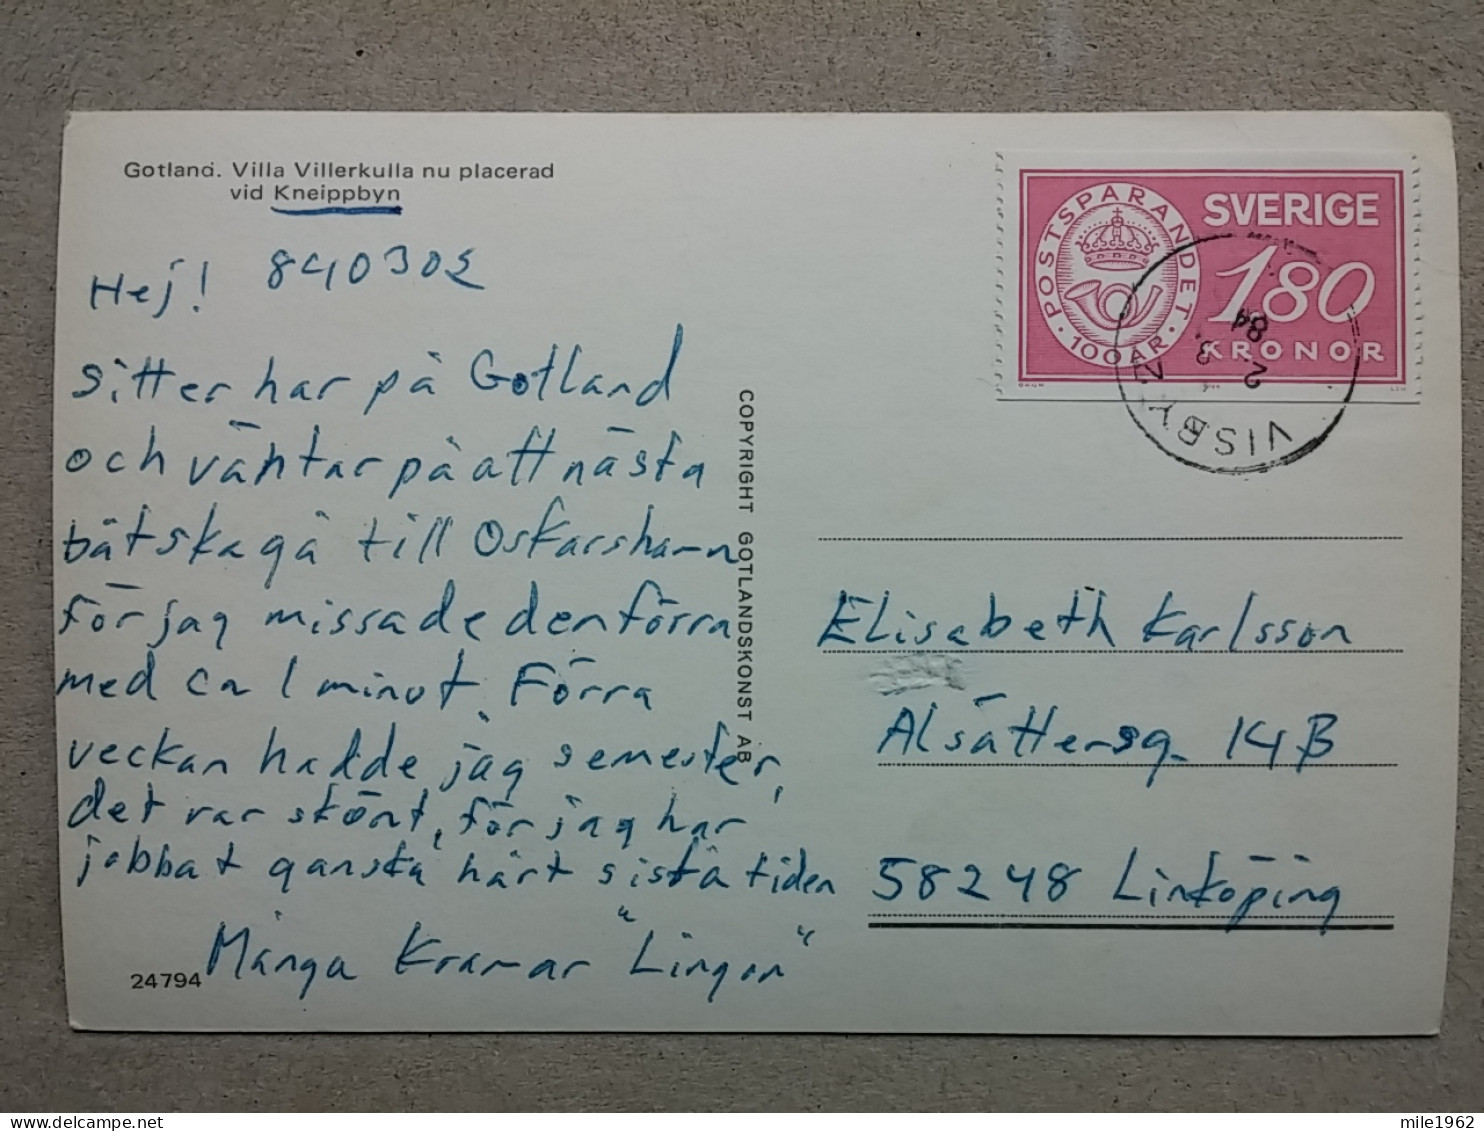 Gotland. Villa Villerkulla nu placerad
vid Kneippbyn
Hej! 840302
sitter här på Gotland
och väntar på att nästa
båt ska gå till Oskarshamn
för jag missade den förra
med ca 1 minut. Förra
veckan hadde jag semester,
det var skönt, för jag har
jobbat ganska hårt sista tiden
Många Kramar "Lingon"
24794
COPYRIGHT GOTLANDSKONST AB
POSTSPARANDET
100 ÅR
SVERIGE
180
KRONOR
VISBY 1
2. 3. 84
Elisabeth Karlsson
Alsätersg. 14B
58248 Linköping
mile1962